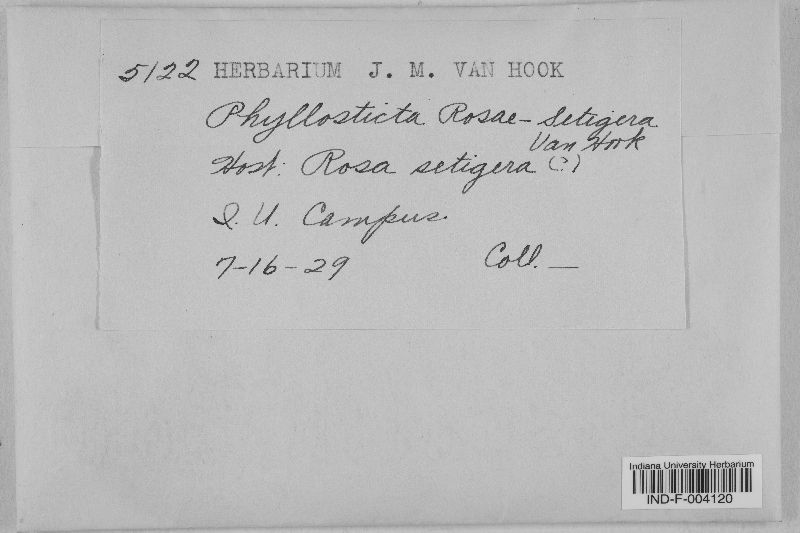 5122 HERBARIUM J. M. VAN HOOK
Phyllosticta Rosae-Setigera
Van Hook
Host: Rosa setigera (?)
I. U. Campus.
7-16-29 Coll. —
Indiana University Herbarium
IND-F-004120